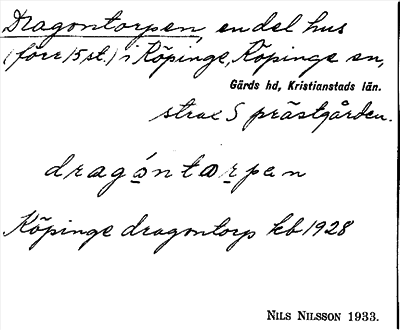 Dragontorpen, en del hus
(förr 15 st.) i Köpinge, Köpinge sn,
Gärds hd, Kristianstads län.
strax S prästgården.
dragóntɑrpan
Köpinge dragontorp kb 1928
NILS NILSSON 1933.